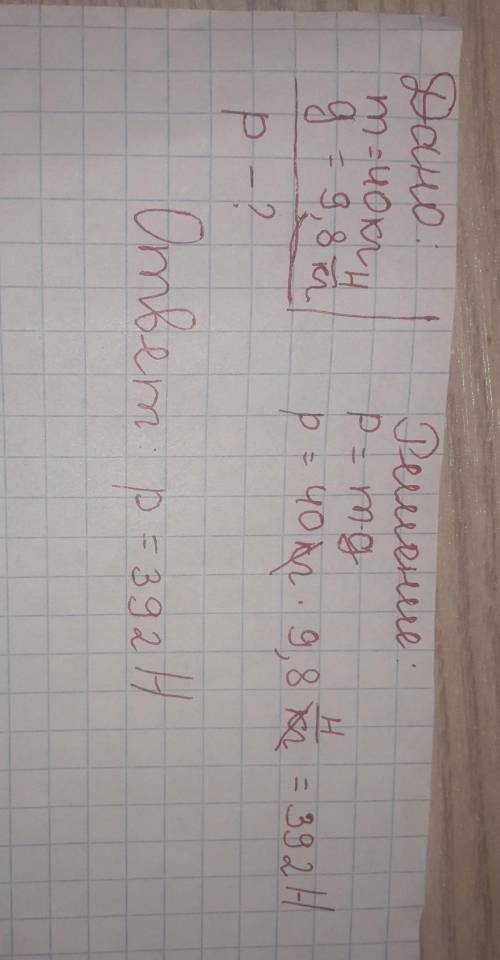 Дано:
m = 40 кг
g = 9,8 Н/кг
p - ?
Решение:
p = mg
p = 40 кг · 9,8 Н/кг = 392 Н
Ответ: p = 392 Н